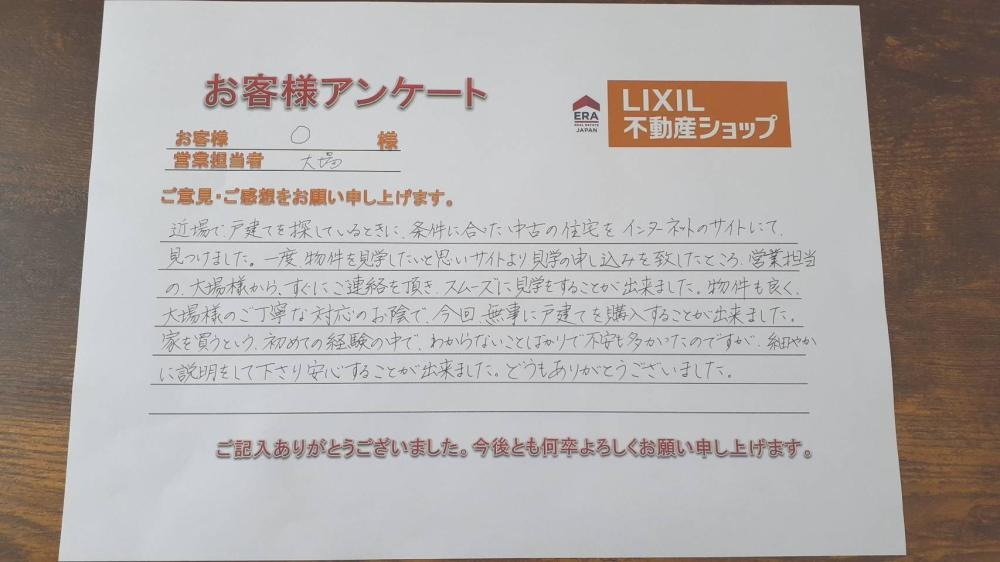 お客様アンケート
ERA
REAL ESTATE
JAPAN
LIXIL
不動産ショップ
お客様 〇 様
営業担当者 大場
ご意見・ご感想をお願い申し上げます。
近場で戸建てを探しているときに、条件に合った中古の住宅をインターネットのサイトにて、
見つけました。一度、物件を見学したいと思いサイトより見学の申し込みを致したところ、営業担当
の、大場様から、すぐにご連絡を頂き、スムーズに見学をすることが出来ました。物件も良く、
大場様のご丁寧な対応のお陰で、今回、無事に戸建てを購入することが出来ました。
家を買うという、初めての経験の中で、わからないことばかりで不安も多かったのですが、細やか
に説明をして下さり安心することが出来ました。どうもありがとうございました。
ご記入ありがとうございました。今後とも何卒よろしくお願い申し上げます。